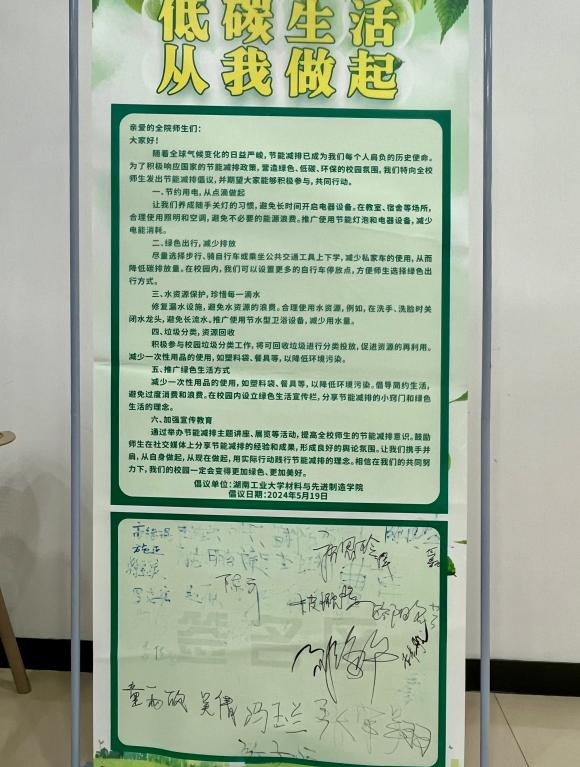 低碳生活
从我做起
亲爱的全院师生们：
大家好！
随着全球气候变化的日益严峻，节能减排已成为我们每个人肩负的历史使命。
为了积极响应国家的节能减排政策，营造绿色、低碳、环保的校园氛围，我们特向全校
师生发出节能减排倡议，并期望大家能够积极参与，共同行动。
一、节约用电，从点滴做起
让我们养成随手关灯的习惯，避免长时间开启电器设备。在教室、宿舍等场所，
合理使用照明和空调，避免不必要的能源浪费。推广使用节能灯泡和电器设备，减少
电能消耗。
二、绿色出行，减少排放
尽量选择步行、骑自行车或乘坐公共交通工具上下学，减少私家车的使用，从而
降低碳排放量。在校园内，我们可以设置更多的自行车停放点，方便师生选择绿色出
行方式。
三、水资源保护，珍惜每一滴水
修复漏水设施，避免水资源的浪费。合理使用水资源，例如，在洗手、洗脸时关
闭水龙头，避免长流水。推广使用节水型卫浴设备，减少用水量。
四、垃圾分类，资源回收
积极参与校园垃圾分类工作，将可回收垃圾进行分类投放，促进资源的再利用。
减少一次性用品的使用，如塑料袋、餐具等，以降低环境污染。
五、推广绿色生活方式
减少一次性用品的使用，如塑料袋、餐具等，以降低环境污染。倡导简约生活，
避免过度消费和浪费。在校园内设立绿色生活宣传栏，分享节能减排的小窍门和绿色
生活的理念。
六、加强宣传教育
通过举办节能减排主题讲座、展览等活动，提高全校师生的节能减排意识。鼓励
师生在社交媒体上分享节能减排的经验和成果，形成良好的舆论氛围。让我们携手并
肩，从自身做起，从现在做起，用实际行动践行节能减排的理念。相信在我们的共同努
力下，我们的校园一定会变得更加绿色、更加美好。
倡议单位：湖南工业大学材料与先进制造学院
倡议日期：2024年5月19日
签名
吴倩 冯玉兰